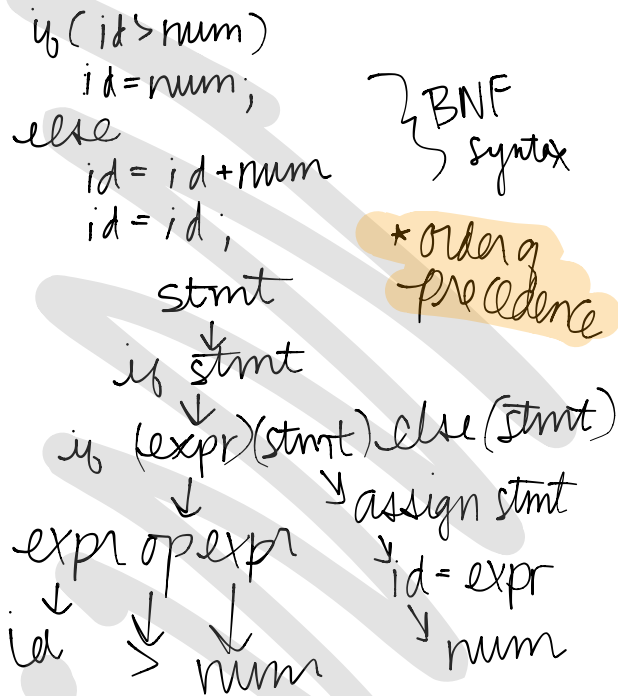 if (id>num)
id=num;
else
id= id+num
id= id;
} BNF
syntax
* order of
precedence
stmt
↓
if stmt
↓
if (expr)(stmt) else (stmt)
↓ ↘ assign stmt
expr op expr ↘ id= expr
↓ ↓ ↓ ↘ num
id > num